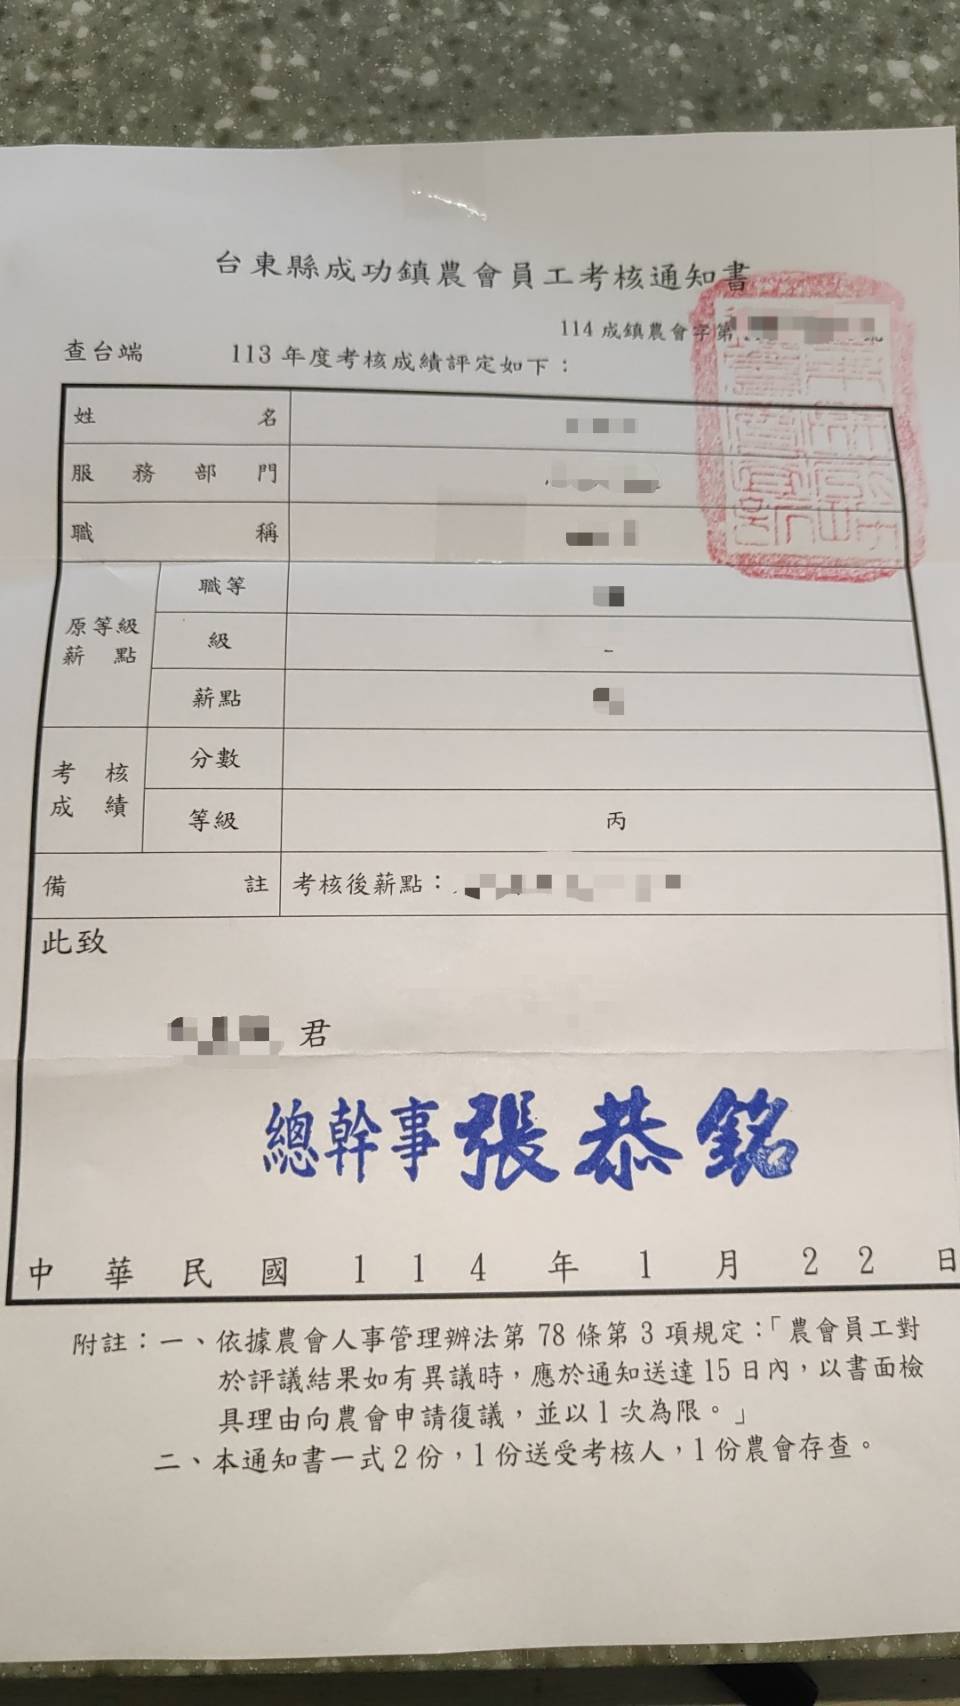 台東縣成功鎮農會員工考核通知書
114成鎮農會字第
查台端 113年度考核成績評定如下：
姓名
服務部門
職稱
原等級薪點
職等
級 -
薪點
考核成績
分數
等級 丙
備註 考核後薪點：
此致
君
總幹事張恭銘
中華民國114年1月22日
附註：一、依據農會人事管理辦法第78條第3項規定：「農會員工對
於評議結果如有異議時，應於通知送達15日內，以書面檢
具理由向農會申請復議，並以1次為限。」
二、本通知書一式2份，1份送受考核人，1份農會存查。